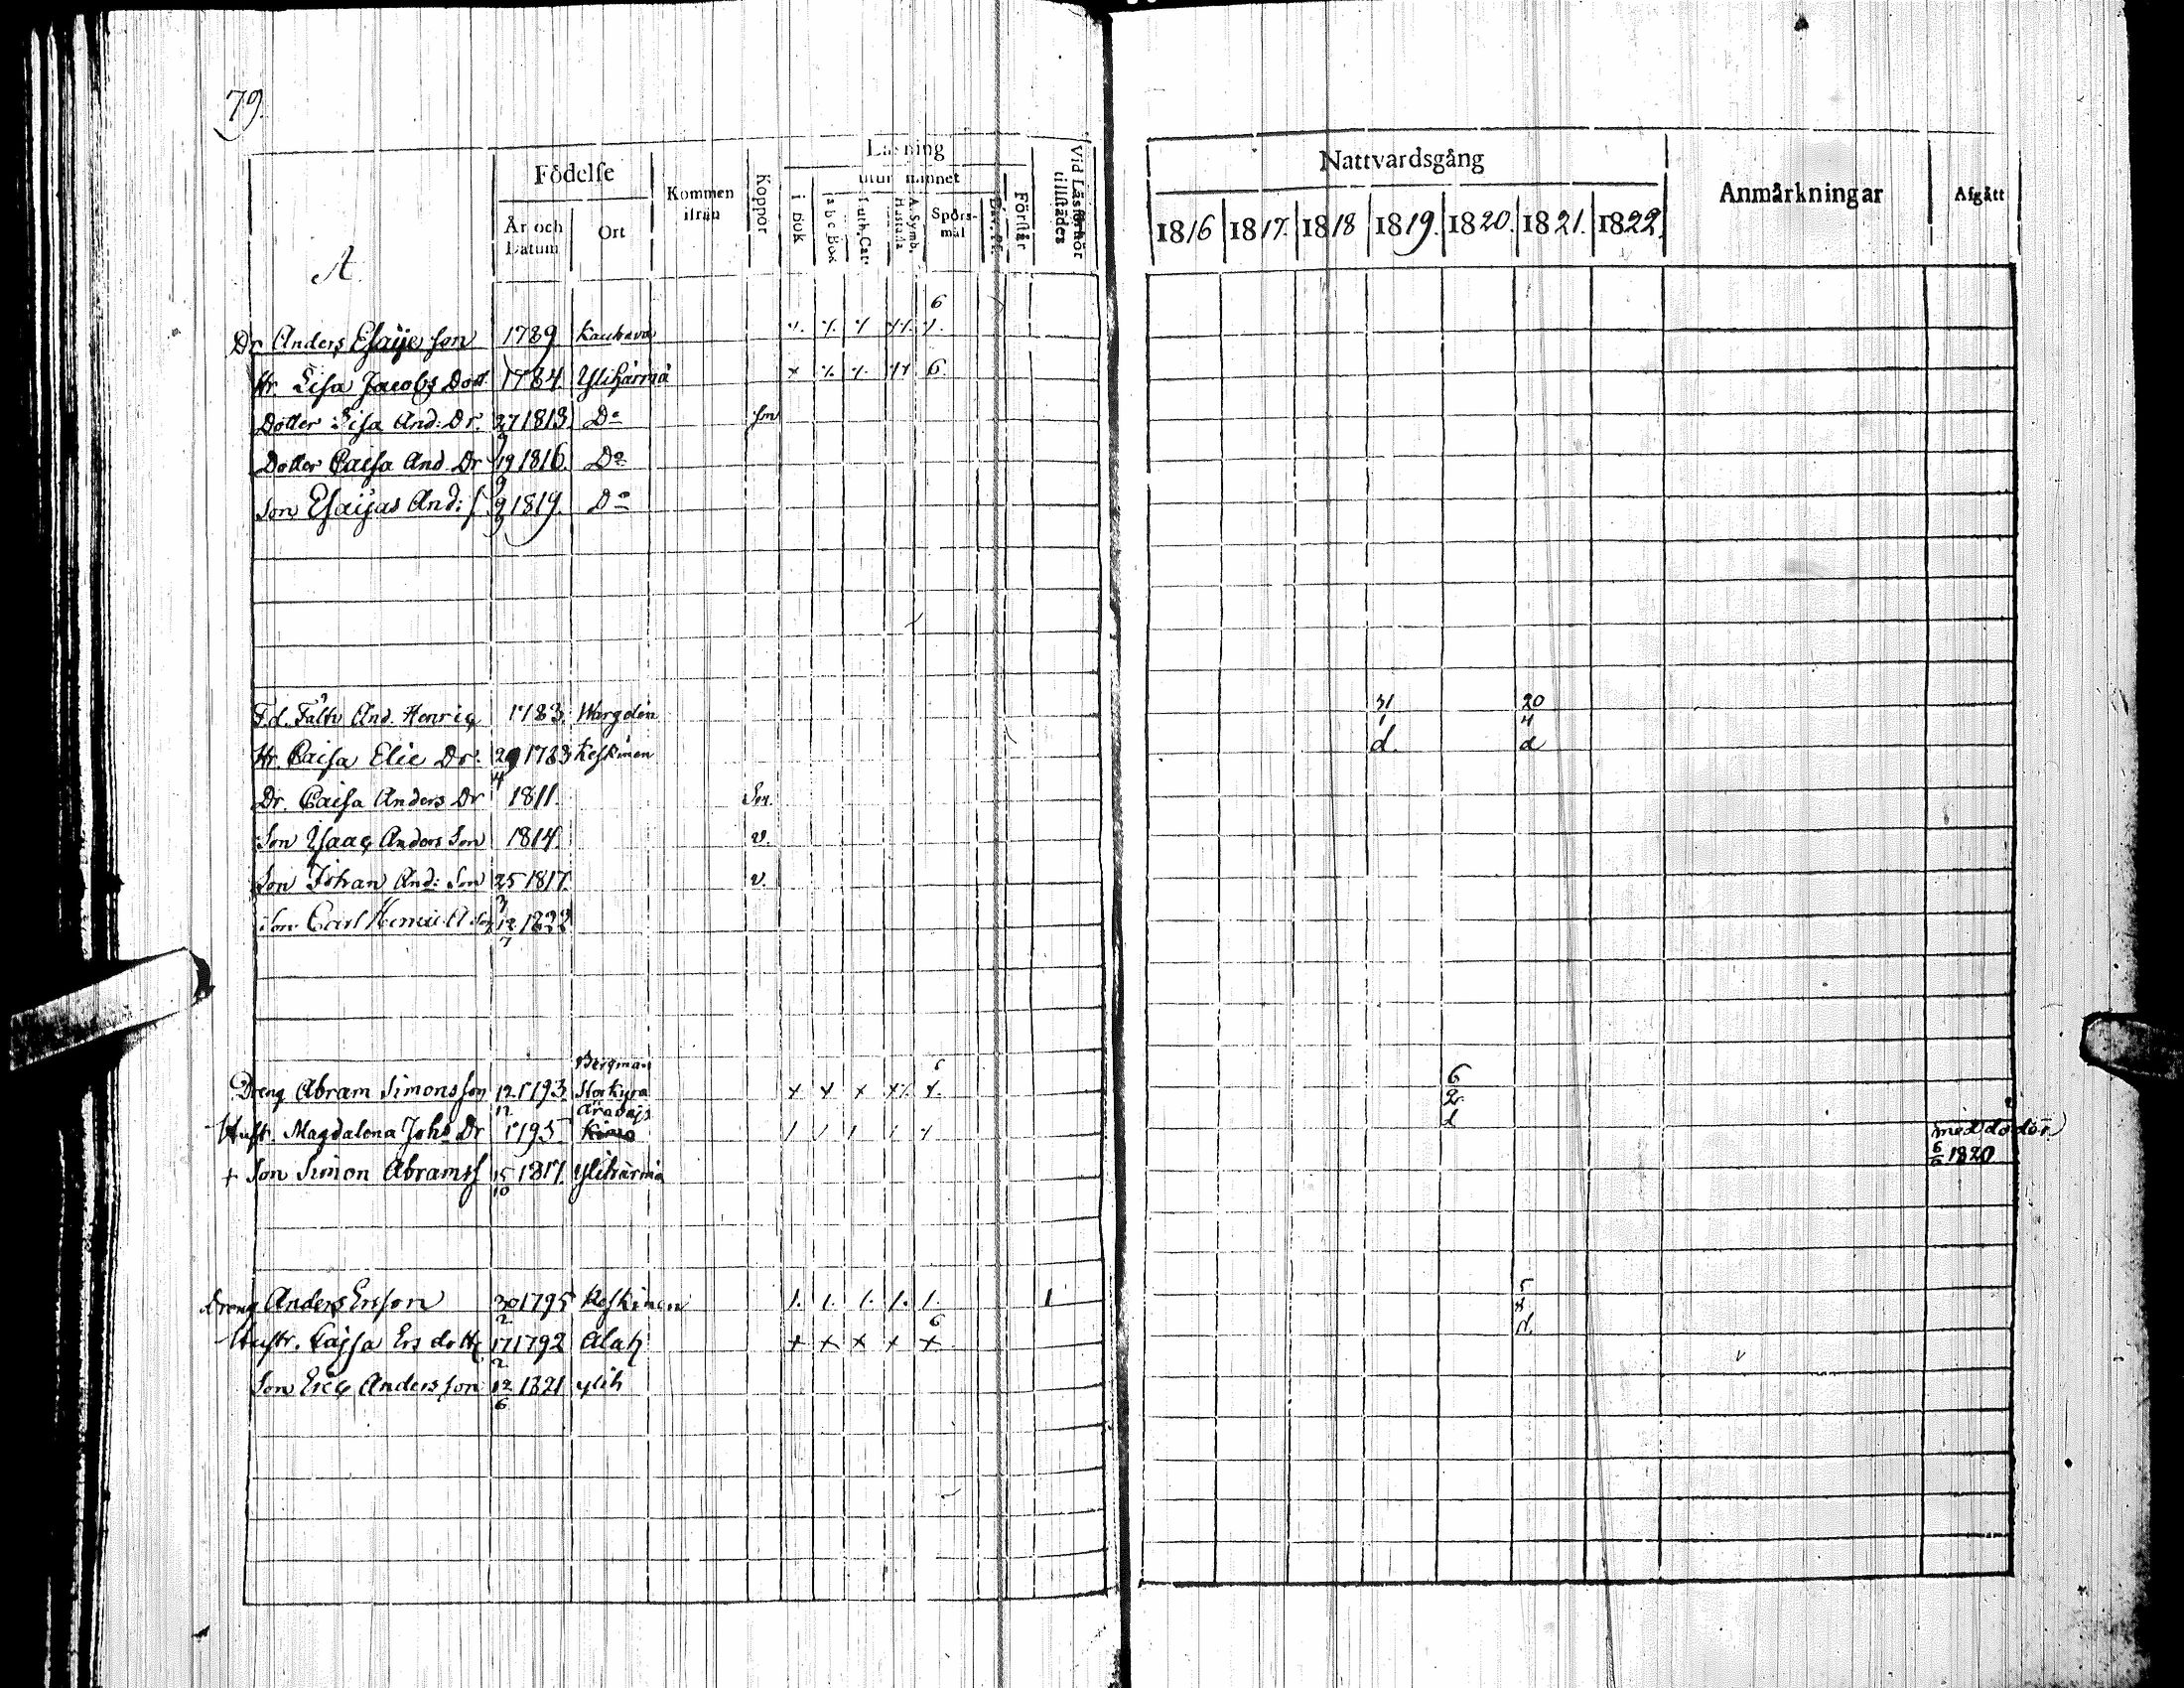 79.
A.
Födelse
År och Datum
Ort
Kommen ifrån
Koppor
Läsning
i bok
utur minnet
a b c Bok
Luth. Cat.
A. Symb. Hustafla
Spörs-mål
Dav. Ps.
Förstår
Vid Läsförhör tillstädes
Nattvardsgång
1816 1817. 1818 1819. 1820. 1821. 1822.
Anmärkningar
Afgått
6
Dr Anders Esaije son 1789 Kauhava
Hr. Lisa Jacobs Dott 1784 Ylihärmä 6.
Dotter Lisa And: Dr. 27 1813. Do
Dotter Caisa And Dr 19/9 1816. Do
Son Esaijas And: s. 9/9 1819. Do
F.d. And. Henriç 1783. Wargdén 31/1 20/4
Hr. Caisa Elie Dr. 29/4 1783 Keskinen d. d
Dr. Caisa Anders Dr 1811.
Son Isaaç Anders Son 1814. v.
Son Johan And: Son 25/3 1817. v.
Son Carl Henric A: Son 12/7 1822
Bergman
Dreng Abram Simonsson 12/12 1793. Storkyro x x x x 6/2 d
Hustr. Magdalena Joh: Dr 1795
+ Son Simon Abramss 15/10 1817. Ylihärmä med döden 6/6 1820.
Dreng Anders Ersson 30/2 1795 Keskinen 1. 1. 1. 1. 1. 1
Hustr. Cajsa Ers dottr 17/2 1792 Alah x x x x x 6
Son Eriç Andersson 12/6 1821 ylih